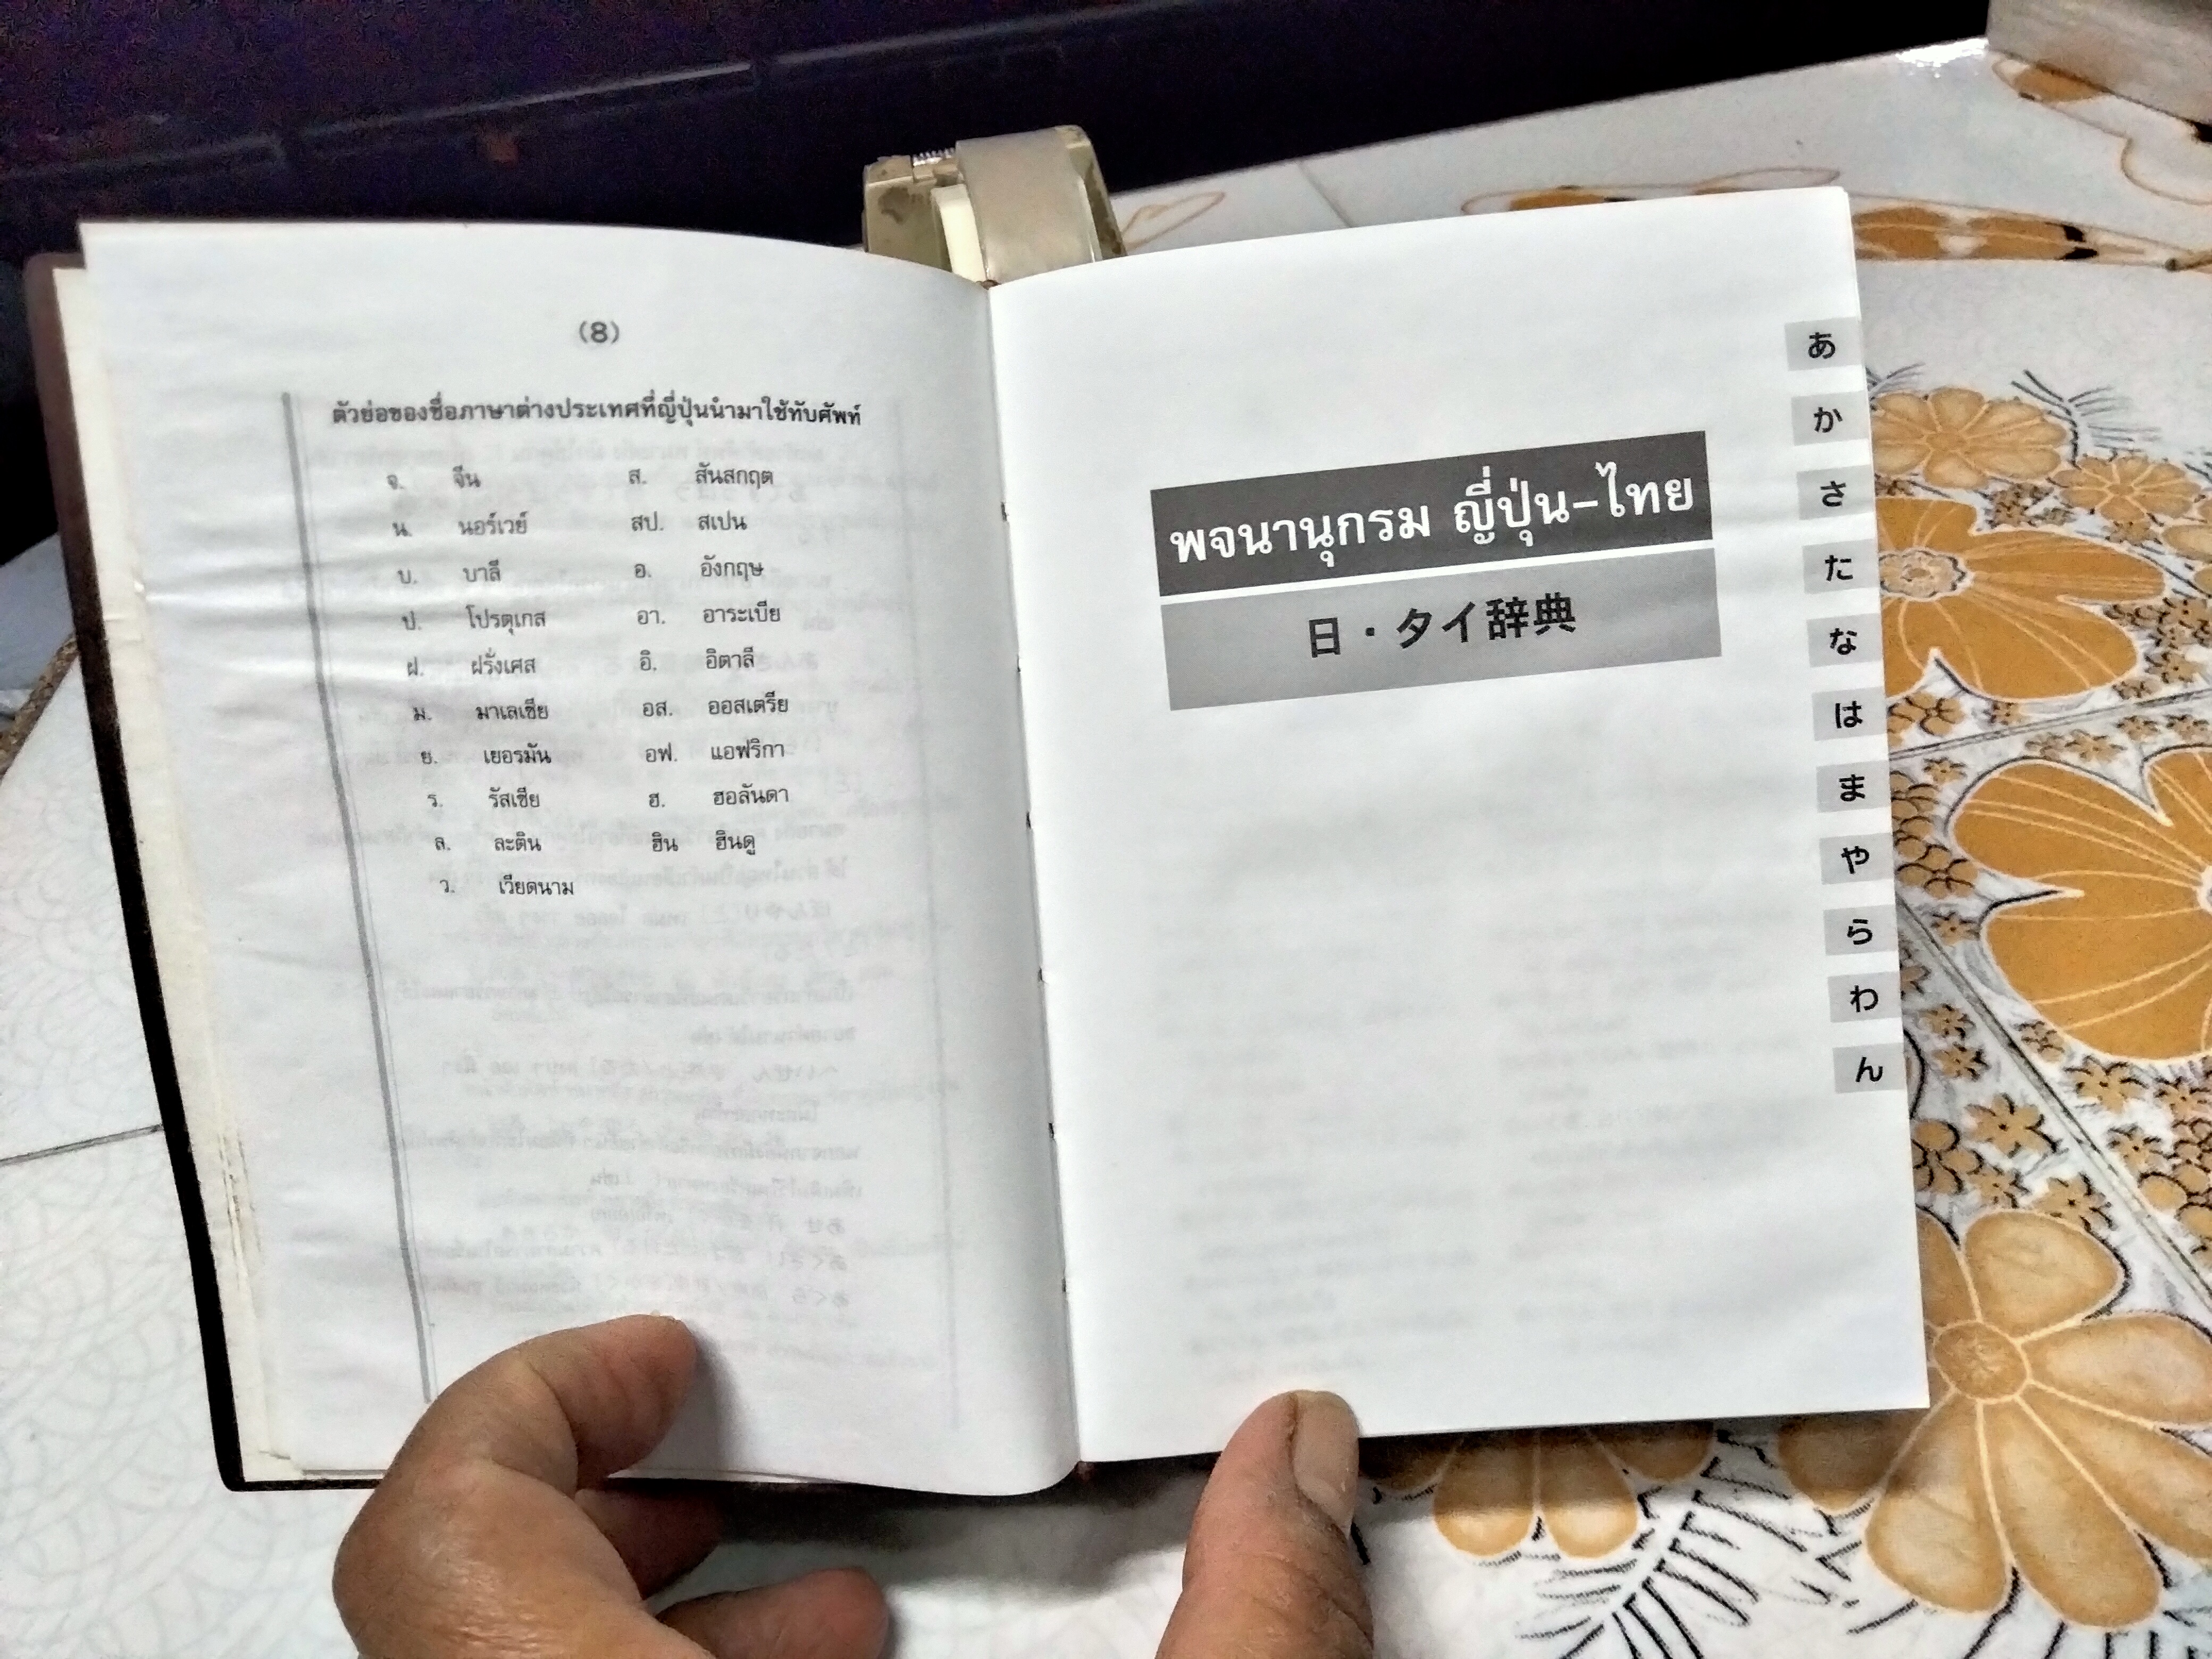 (8)
ตัวย่อของชื่อภาษาต่างประเทศที่ญี่ปุ่นนำมาใช้ทับศัพท์
จ. จีน ส. สันสกฤต
น. นอร์เวย์ สป. สเปน
บ. บาลี อ. อังกฤษ
ป. โปรตุเกส อา. อาระเบีย
ฝ. ฝรั่งเศส อิ. อิตาลี
ม. มาเลเซีย อส. ออสเตรีย
ย. เยอรมัน อฟ. แอฟริกา
ร. รัสเซีย ฮ. ฮอลันดา
ล. ละติน ฮิน ฮินดู
ว. เวียดนาม
พจนานุกรม ญี่ปุ่น-ไทย
日・タイ辞典
あ
か
さ
た
な
は
ま
や
ら
わ
ん